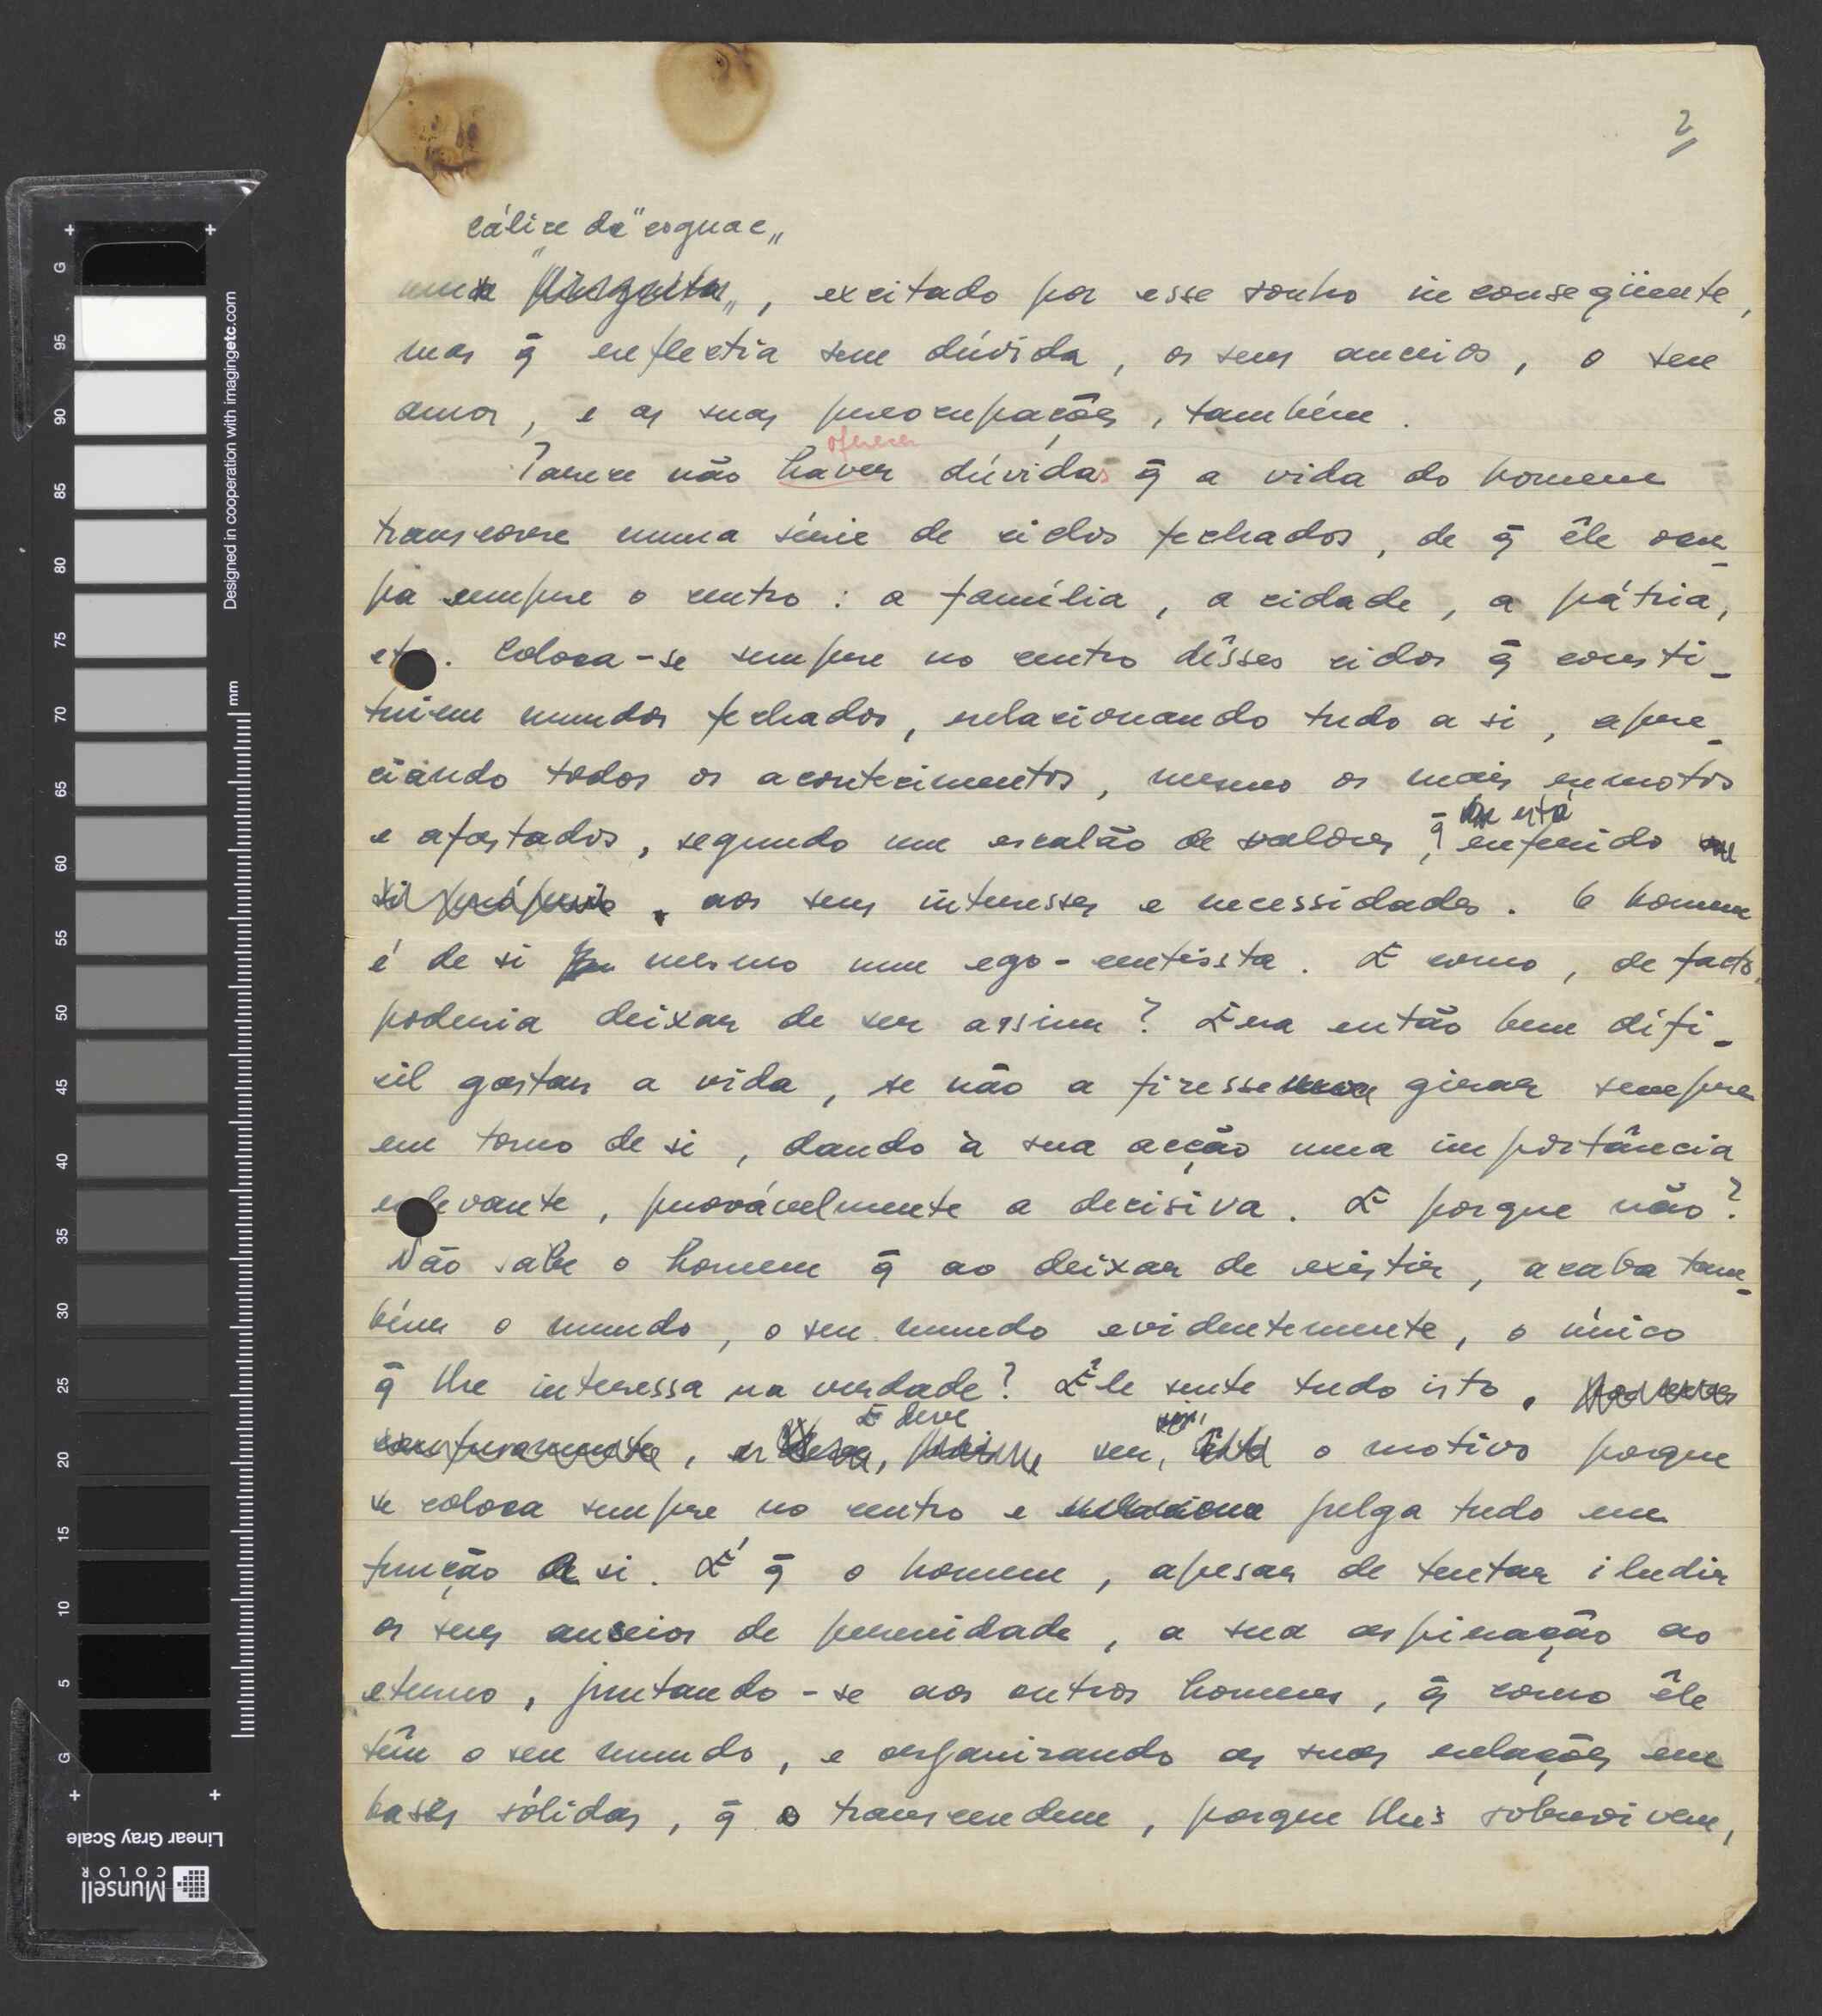 2
cálice de "cognac"
num "pinguita", excitado por esse sonho inconseqüente,
mas q̄ reflectia sem dúvida, os seus anceios, o seu
amor, e as suas preocupações, também.
oferecer
Parece não haver dúvidas q̄ a vida do homem
transcorre numa série de ciclos fechados, de q̄ êle ocu-
pa sempre o centro: a família, a cidade, a pátria,
etc. Coloca-se sempre no centro dêsses ciclos q̄ consti-
tuiem mundos fechados, relacionando tudo a si, apre-
ciando todos os acontecimentos, mesmo os mais remotos
está
e afastados, segundo um escalão de valores, q̄ referido
si próprio, aos seus interesses e necessidades. O homem
é de si mesmo um ego-centissta. E como, de facto,
poderia deixar de ser assim? Era então bem difi-
cil gastar a vida, se não a fizesse girar sempre
em torno de si, dando à sua acção uma importância
relevante, provávelmente a decisiva. E porque não?
Não sabe o homem q̄ ao deixar de existir, acaba tam-
bém o mundo, o seu mundo evidentemente, o único
q̄ lhe interessa na verdade? Êle sente tudo isto.
E deve
ser, o motivo porque
se coloca sempre no centro e relaciona julga tudo em
função de si. É q̄ o homem, apesar de tentar iludir
os seus anseios de perenidade, a sua aspiração ao
eterno, juntando-se aos outros homens, q̄ como êle
têm o seu mundo, e organizando as suas relações em
bases sólidas, q̄ o transcendem, porque lhes sobrevivem,
Designed in cooperation with imagingetc.com
mm
G
95
90
85
80
75
70
65
60
55
50
45
40
35
30
25
20
15
10
5
G
Linear Gray Scale
Munsell
COLOR